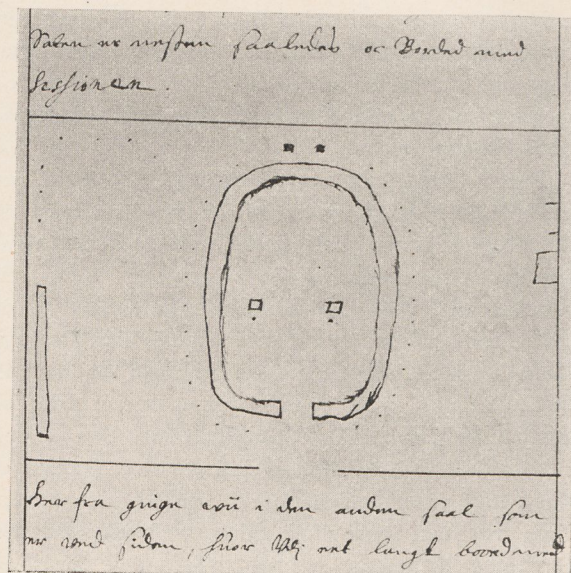 Salen er nesten saaledes oc Borded med
Sessionen.
Her fra ginge wii i den anden saal som
er ved siden, huor Wdj eet langt boord med